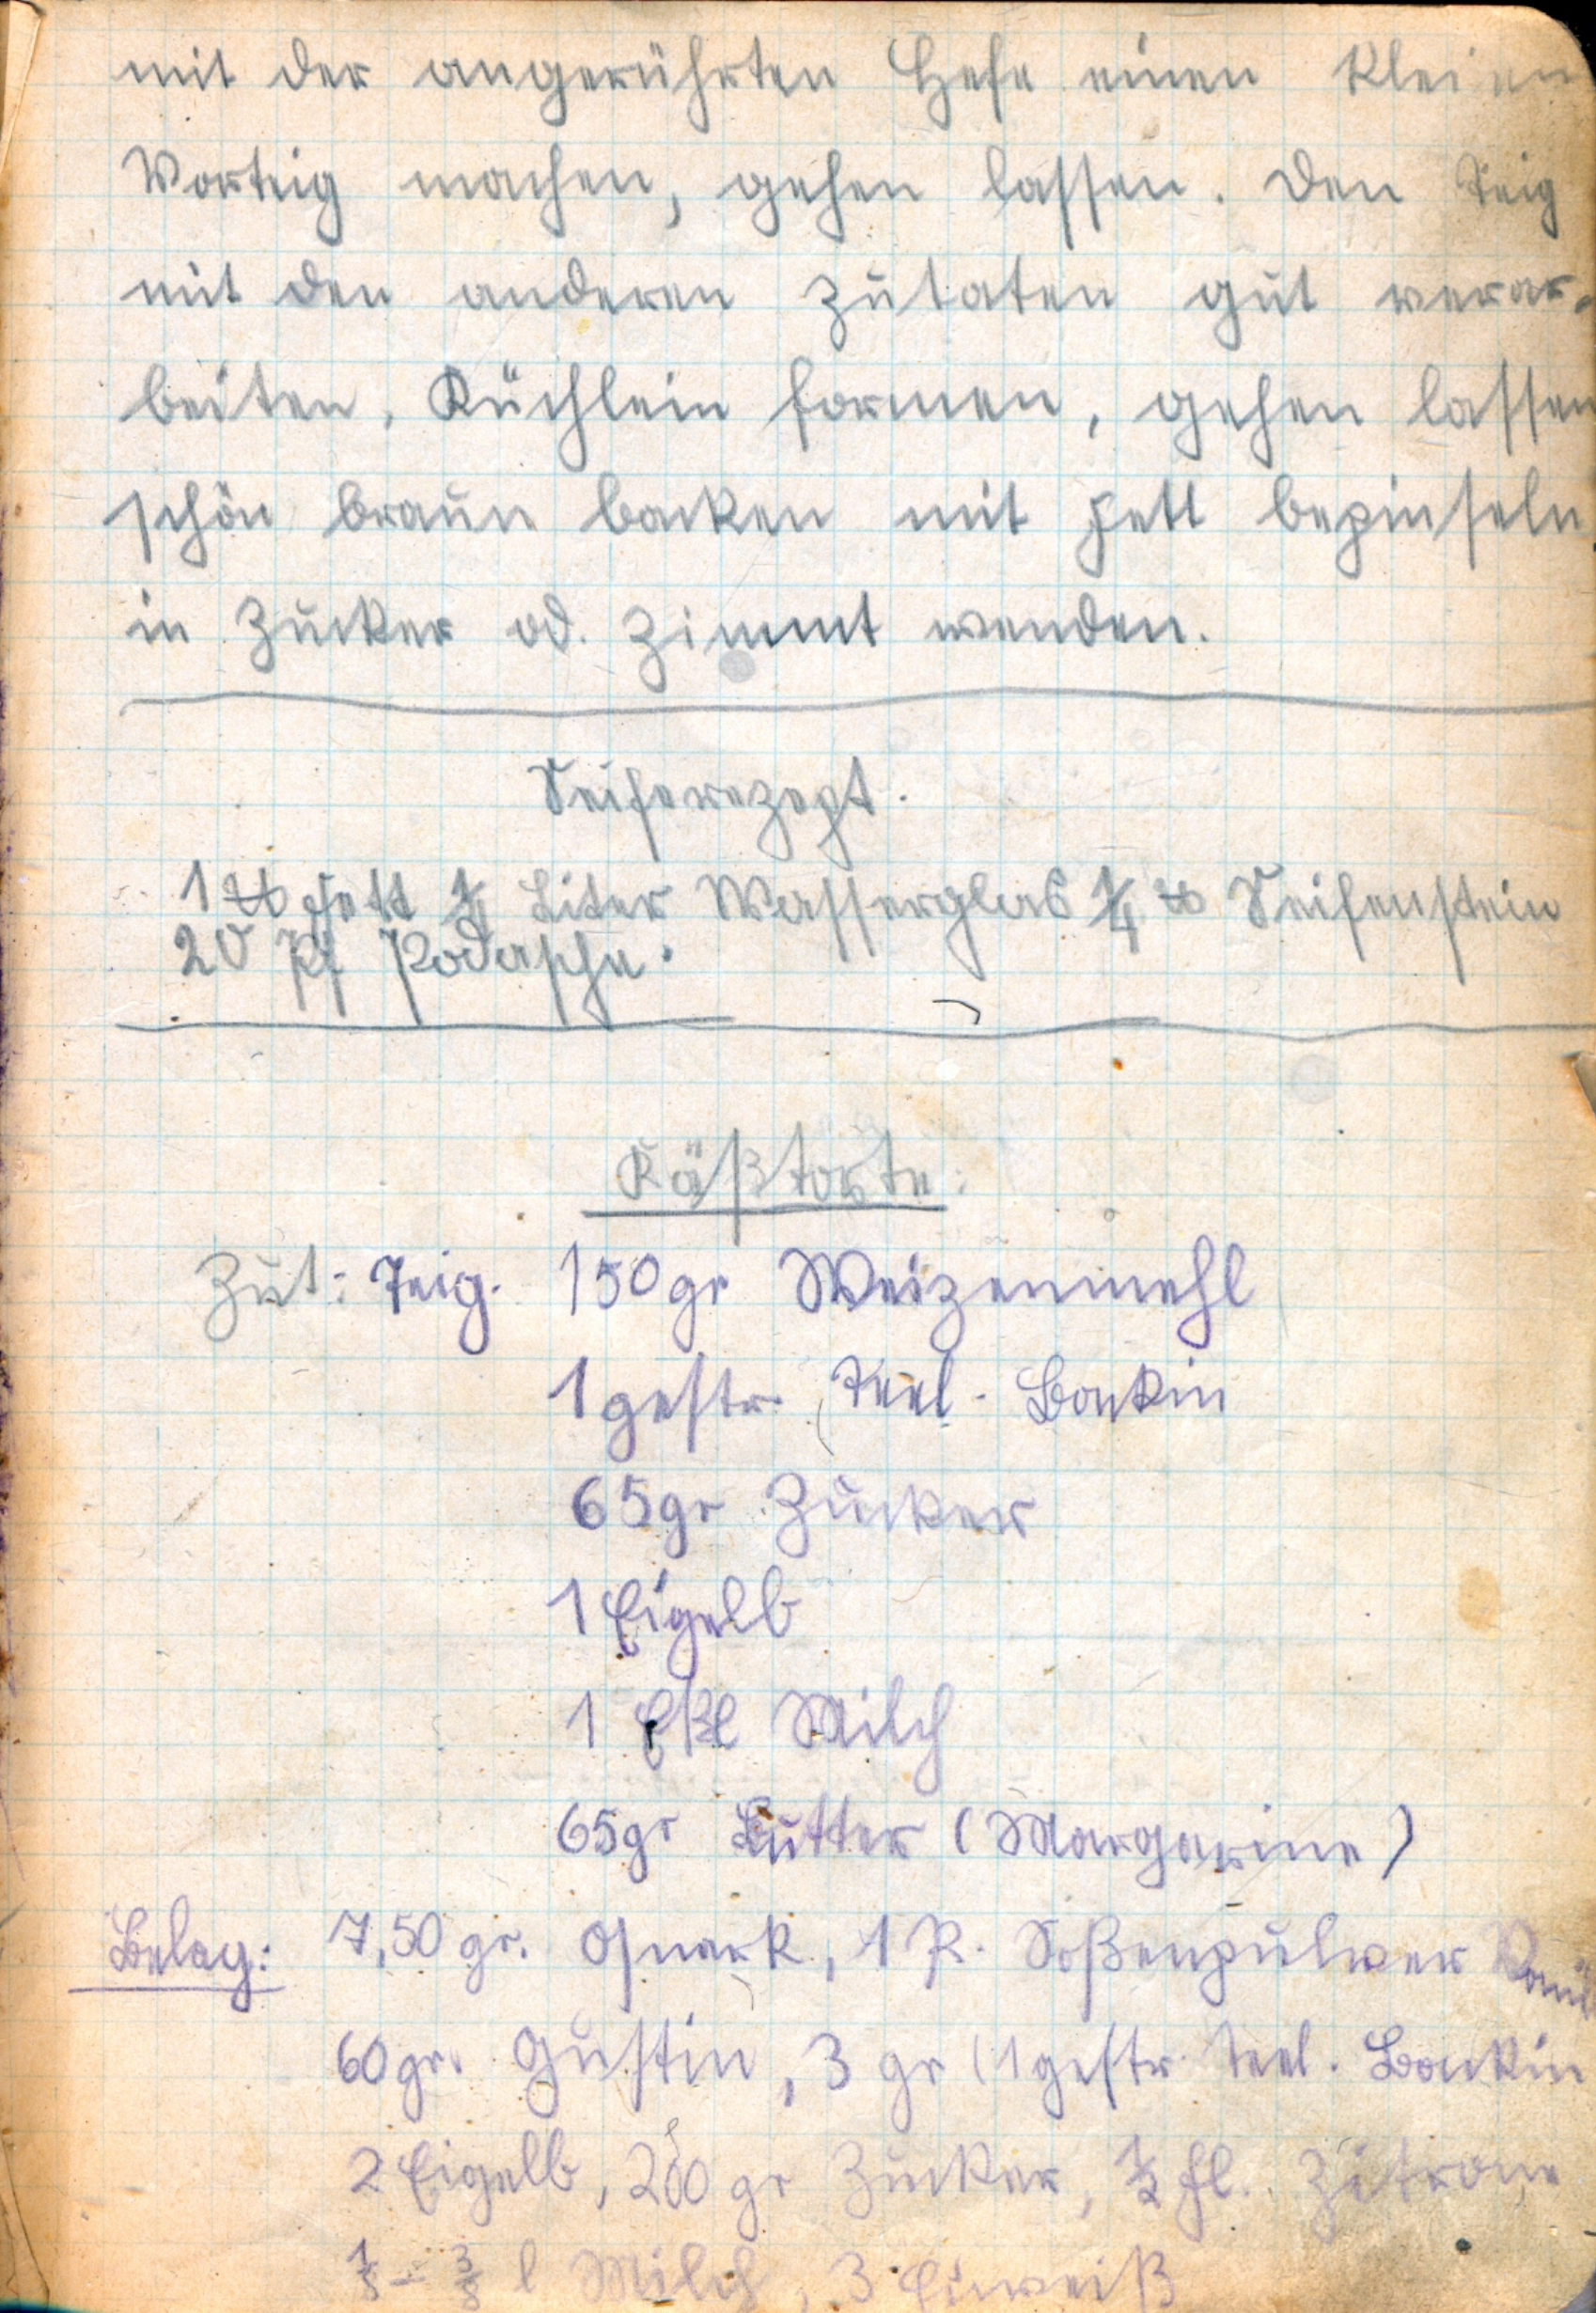 mit der angerührten Hefe einen kleinen
Vorteig machen, gehen lassen. Den Teig
mit den anderen Zutaten gut verar-
beiten, Küchlein formen, gehen lassen
schön braun backen mit Fett bepinseln
in Zucker od. Zimmt wenden.
Seiferezept.
1 ℔ Fett 1/4 Liter Wasserglas 1/4 ℔ Seifenstein
20 Pf Podasche.
Käßtorte:
Zut: Teig. 150 gr Weizenmehl
1 gestr. Teel. Backin
65 gr Zucker
1 Eigelb
1 Eßl Milch
65 gr Butter (Margarine)
Belag: 7,50 gr. Quark, 1 P. Soßenpulver Vanil
60 gr. Gustin, 3 gr (1 gestr. Teel. Backin
2 Eigelb, 200 gr Zucker, 1/2 Fl. Zitrone
- 3/8 l Milch, 3 Eiweiß